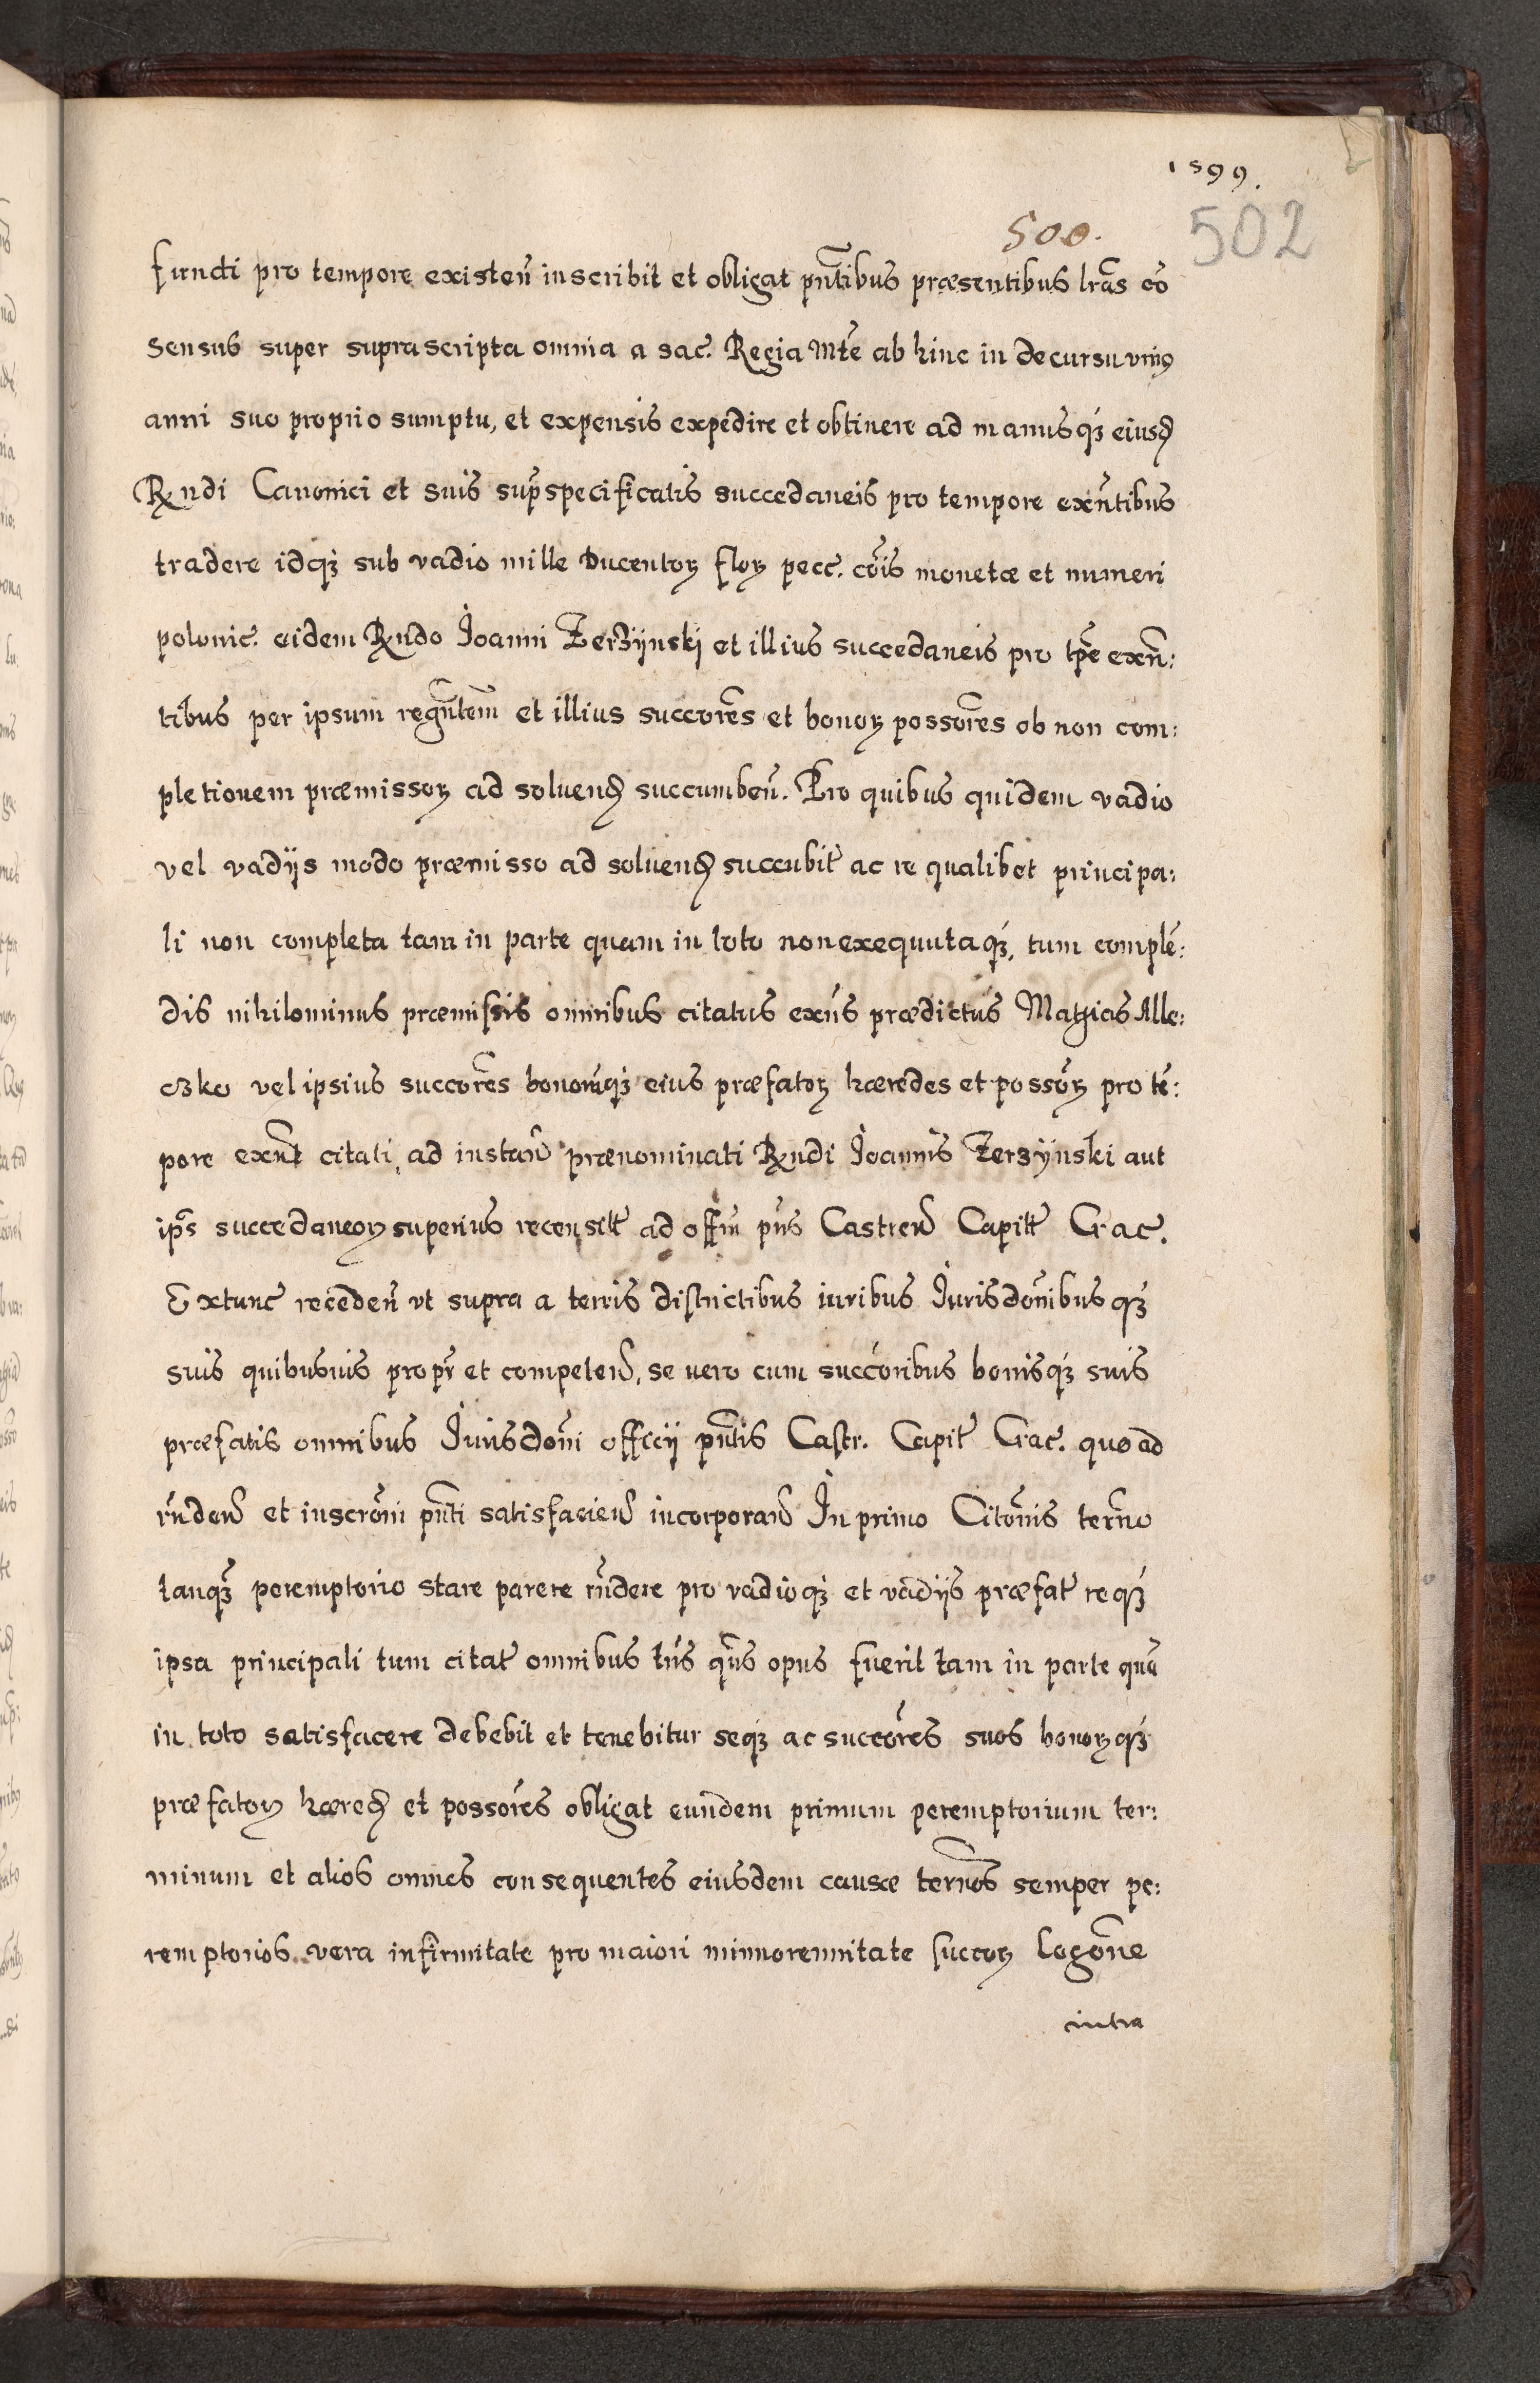 1599.
500.
502
functi pro tempore existeñ inscribit et obligat pñtibus præsentibus lras cõ
sensus super suprascripta omnia a sac. Regia Mte ab hinc in decursu vniꝰ
anni suo proprio sumptu, et expensis expedire et obtinere ad manusqꝫ eiusꝺ
Rndi Canonici et suis suprspecificatis succedaneis pro tempore exñtibus
tradere idqꝫ sub vadio mille Ducentoꝝ floꝝ pecc. cõis monetæ et numeri
polonic. eidem Rndo Joanni Zerzÿnskj et illius succedaneis pro tpe exñ:
tibus per ipsum regñtem et illius succores et bonoꝝ possores ob non com:
pletionem præmissoꝝ ad soluenꝺ succumbeñ. Pro quibus quidem vadio
vel vadijs modo præmisso ad soluenꝺ succubit ac re qualibet principa:
li non completa tam in parte quam in toto non exequutaqꝫ, tum complẽ:
dis nihilominus præmissis omnibus citatus exñs prædictus Mathias Alle:
czko vel ipsius succores bonorũqꝫ eius præfatoꝝ hæredes et possoꝝ pro tẽ:
pore exñt citati, ad instañ prænominati Rndi Joannis Zerzÿnski aut
ips succedaneoꝝ superius recensitt ad offm pñs Castreñ Capitt Crac.
Extunc recedeñ vt supra a terris districtibus iuribus Jurisdonibusqꝫ
suis quibusuis propr et competeñ, se vero cum succoribus bonisqꝫ suis
præfatis omnibus Jurisdoni officij pñtis Castr. Capit Crac. quo ad
rñdenꝺ et inscroni pñti satisfacienꝺ incorporanꝺ In primo Citonis termo
tanqꝫ peremptorio stare parere rñdere pro vadioqꝫ et vadijs præfat reqꝫ
ipsa principali tum citat omnibus ttis qñs opus fuerit tam in parte quã
in toto satisfacere debebit et tenebitur seqꝫ ac succores suos bonoꝝqꝫ
præfatoꝝ hæreꝺ et possores obligat eundem primum peremptorium ter:
minum et alios omnes consequentes eiusdem causæ termos semper pe:
remptorios vera infirmitate pro maiori minorennitate succoꝝ Logone
intra